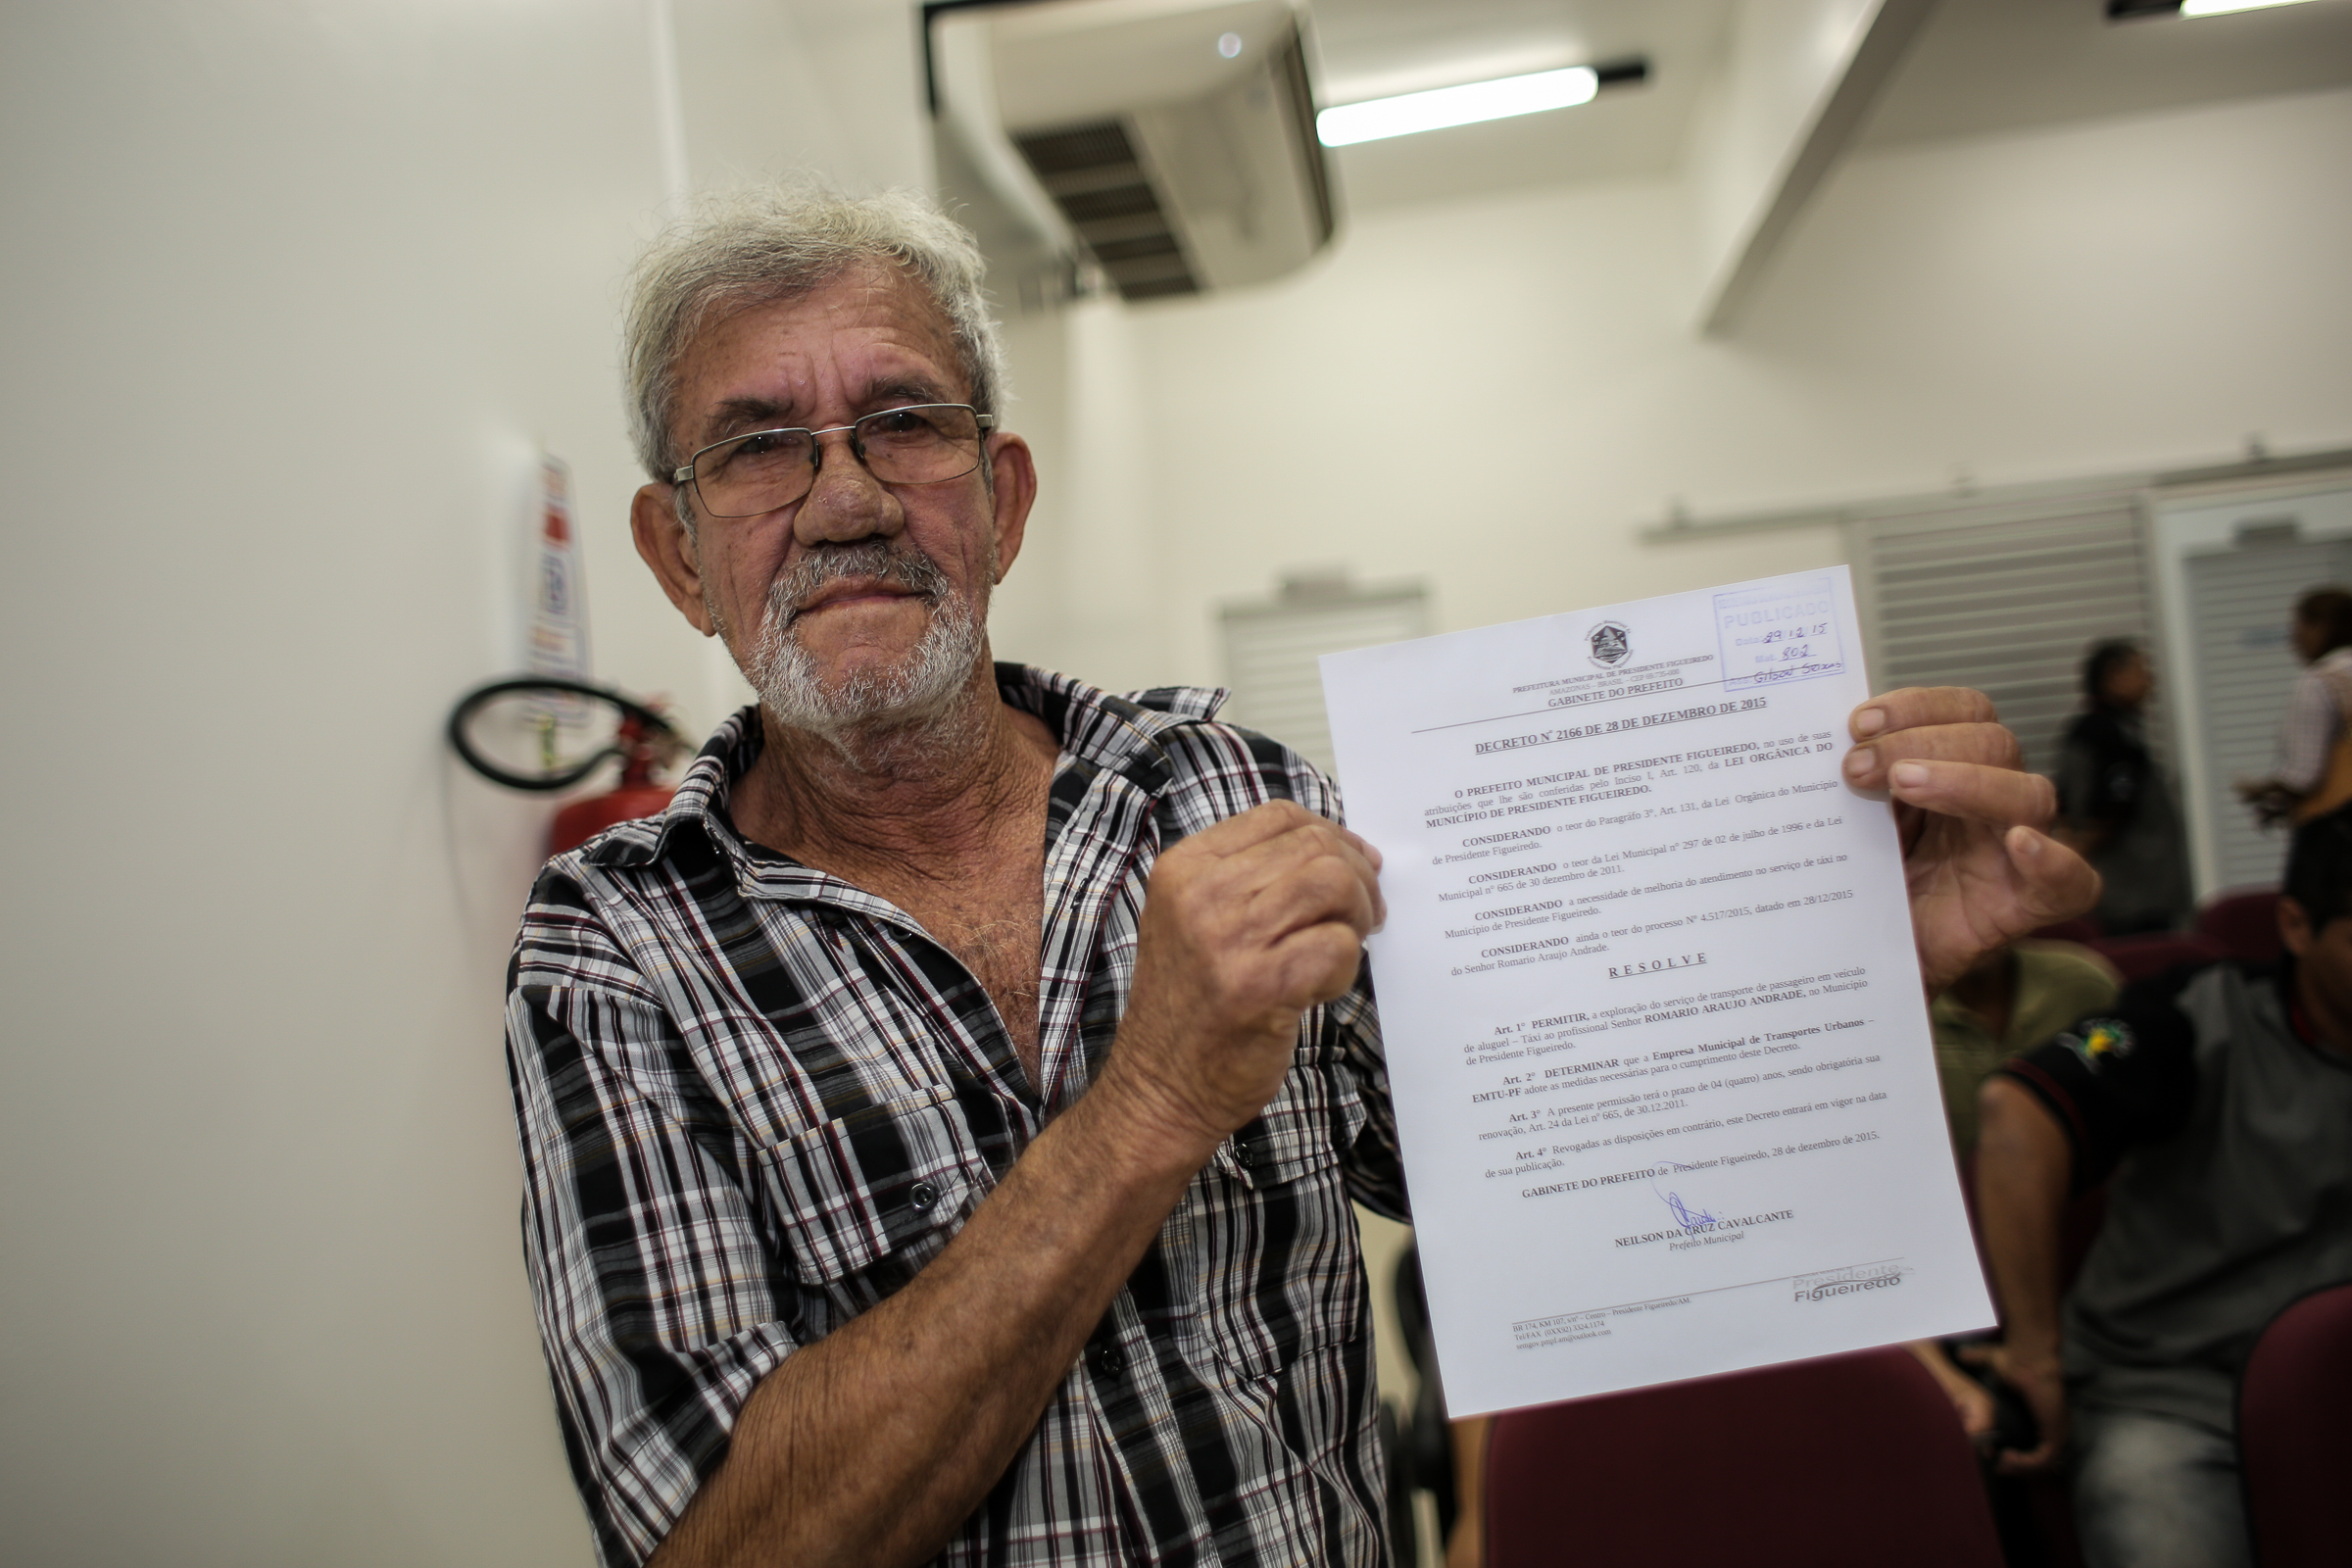 PUBLICADO
Data: 29/12/15
Mat. 802
PREFEITURA MUNICIPAL DE PRESIDENTE FIGUEIREDO
AMAZONAS – BRASIL – CEP 69.735-000
GABINETE DO PREFEITO
DECRETO Nº 2166 DE 28 DE DEZEMBRO DE 2015
O PREFEITO MUNICIPAL DE PRESIDENTE FIGUEIREDO, no uso de suas
atribuições que lhe são conferidas pelo Inciso I, Art. 120, da LEI ORGÂNICA DO
MUNICÍPIO DE PRESIDENTE FIGUEIREDO.
CONSIDERANDO o teor do Paragráfo 3º, Art. 131, da Lei Orgânica do Município
de Presidente Figueiredo.
CONSIDERANDO o teor da Lei Municipal nº 297 de 02 de julho de 1996 e da Lei
Municipal nº 665 de 30 dezembro de 2011.
CONSIDERANDO a necessidade de melhoria do atendimento no serviço de táxi no
Município de Presidente Figueiredo.
CONSIDERANDO ainda o teor do processo Nº 4.517/2015, datado em 28/12/2015
do Senhor Romario Araujo Andrade.
R E S O L V E
Art. 1º PERMITIR, a exploração do serviço de transporte de passageiro em veículo
de aluguel – Táxi ao profissional Senhor ROMARIO ARAUJO ANDRADE, no Município
de Presidente Figueiredo.
Art. 2º DETERMINAR que a Empresa Municipal de Transportes Urbanos –
EMTU-PF adote as medidas necessárias para o cumprimento deste Decreto.
Art. 3º A presente permissão terá o prazo de 04 (quatro) anos, sendo obrigatória sua
renovação, Art. 24 da Lei nº 665, de 30.12.2011.
Art. 4º Revogadas as disposições em contrário, este Decreto entrará em vigor na data
de sua publicação.
GABINETE DO PREFEITO de Presidente Figueiredo, 28 de dezembro de 2015.
NEILSON DA CRUZ CAVALCANTE
Prefeito Municipal
Presidente
Figueiredo
BR 174, KM 107, s/nº – Centro – Presidente Figueiredo/AM.
Tel/FAX (0XX92) 3324.1174